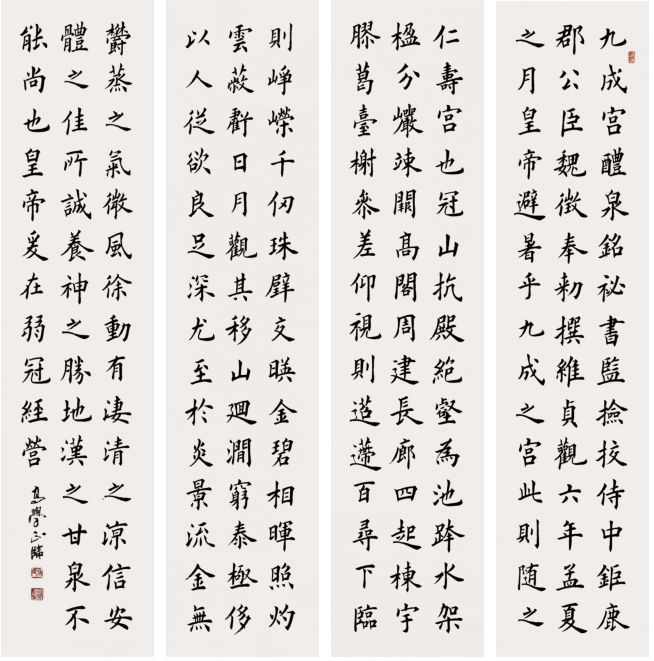 九成宫醴泉銘祕書監撿挍侍中鉅鹿
郡公臣魏徵奉勑撰維貞觀六年孟夏
之月皇帝避暑乎九成之宫此則随之
仁壽宫也冠山抗殿絶壑為池跨水架
楹分巖竦闕高閣周建長廊四起棟宇
膠葛臺榭叅差仰視則迢遰百尋下臨
則崢嶸千仞珠璧交暎金碧相暉照灼
雲蔽虧日月觀其移山迴澗窮泰極侈
以人從欲良足深尤至於炎景流金無
鬱蒸之氣微風徐動有淒清之凉信安
體之佳所誠養神之勝地漢之甘泉不
能尚也皇帝爰在弱冠經營